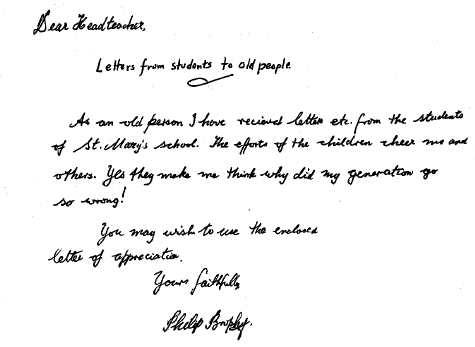 Dear Headteacher,
Letters from students to old people
As an old person I have recieved letters etc. from the students
of St. Mary's school. The efforts of the children cheer me and
others. Yes they make me think why did my generation go
so wrong!
You may wish to use the enclosed
letter of appreciation.
Yours faithfully
Philip